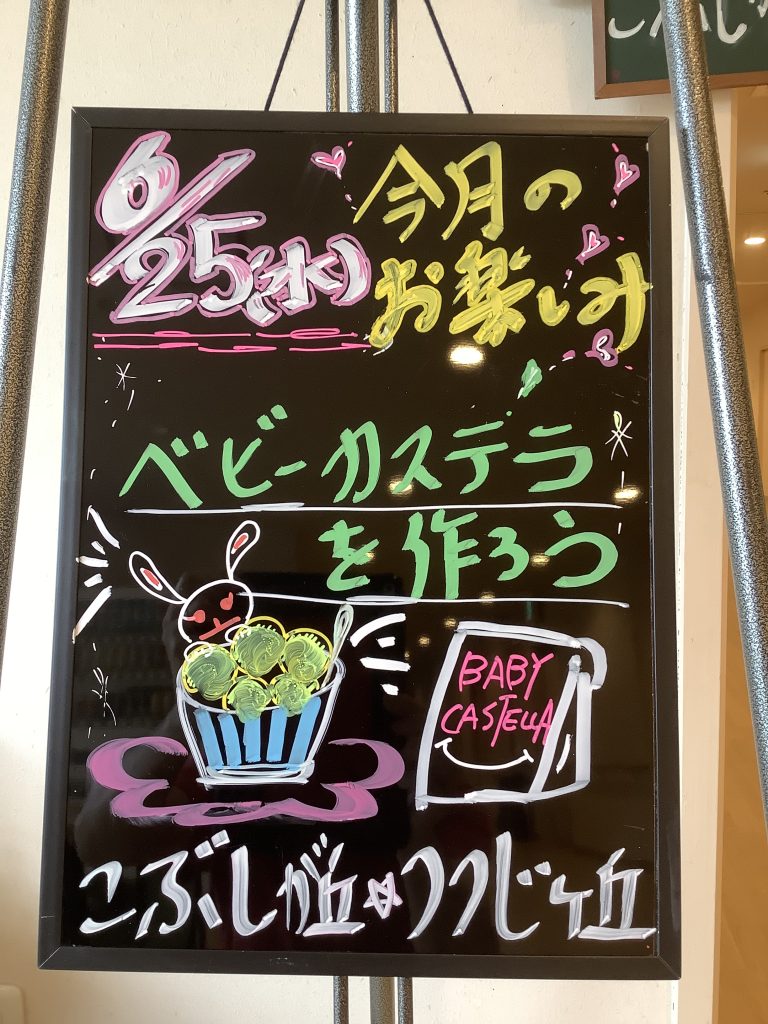 6/25(水)
今月の
お楽しみ
ベビーカステラ
を作ろう
BABY
CASTELLA
こぶしが丘☆つつじヶ丘
こぶしが